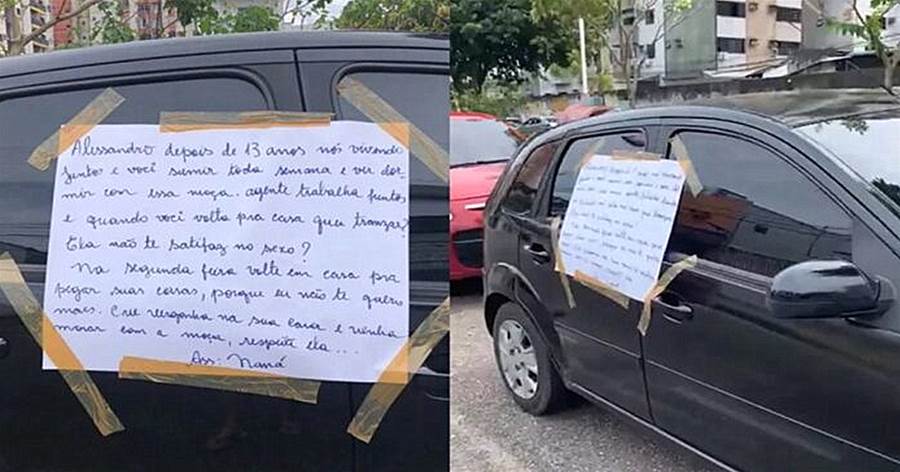 Alissandro depois de 13 anos nós vivendo
juntos e você sumir toda semana e vir dor
mir com essa moça. agente trabalha juntos
e quando você volta pra casa quer transar?
Ela não te satifaz no sexo?
Na segunda feira volte em casa pra
pegar suas coisas, porque eu não te quero
mais. Crie vergonha na sua cara e venha
morar com a moça, respeite ela...
Ass: Naná